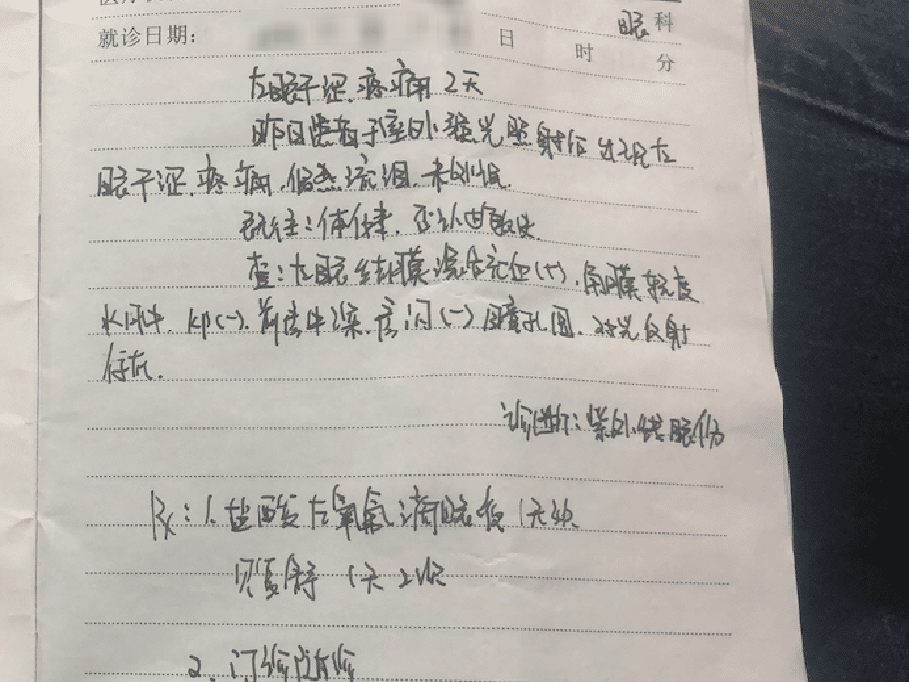 眼科
就诊日期: 日 时 分
左眼干涩、疼痛2天
昨日患者于室外强光照射后出现左
眼干涩、疼痛、偶然流泪、未处理.
既往:体健, 否认
查:左眼结膜混合充血(+), 角膜轻度
水肿, kp(-), 前房中深, 房闪(-) 瞳孔圆, 对光反射
存在.
诊断:紫外线眼伤
Rx:1. 盐酸左氧氟滴眼液 1天
贝复舒 1天2次
2. 门诊随诊